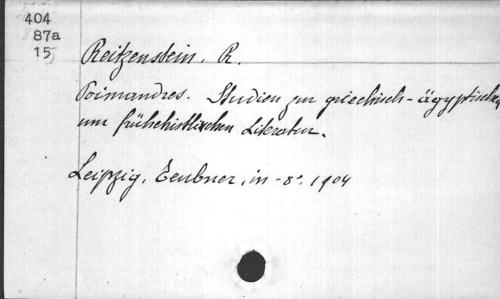 404
87a
15
Reitzenstein, R.
Poimandres. Studien zur griechisch-ägyptischen
und frühchristlichen Literatur.
Leipzig, Teubner, in-8°. 1904